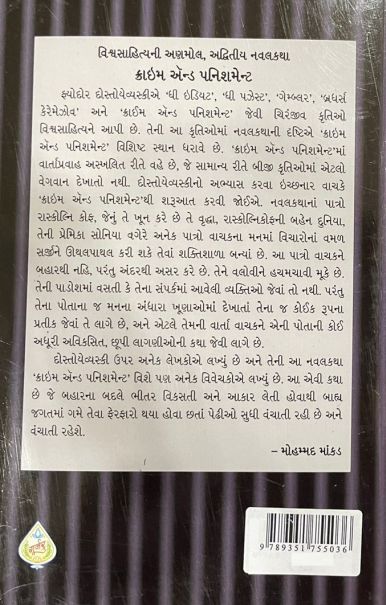 વિશ્વસાહિત્યની અણમોલ, અદ્વિતીય નવલકથા
ક્રાઇમ ઍન્ડ પનિશમેન્ટ
ફ્યોદોર દોસ્તોયેવ્યસ્કીએ ‘ધી ઇડિયટ’, ‘ધી પઝેસ્ટ’, ‘ગેમ્બલર’, ‘બ્રધર્સ
કેરેમેઝોવ’ અને ‘ક્રાઈમ ઍન્ડ પનિશમેન્ટ’ જેવી ચિરંજીવ કૃતિઓ
વિશ્વસાહિત્યને આપી છે. તેની આ કૃતિઓમાં નવલકથાની દૃષ્ટિએ ‘ક્રાઇમ
ઍન્ડ પનિશમેન્ટ’ વિશિષ્ટ સ્થાન ધરાવે છે. ‘ક્રાઇમ ઍન્ડ પનિશમેન્ટ’માં
વાર્તાપ્રવાહ અસ્ખલિત રીતે વહે છે, જે સામાન્ય રીતે બીજી કૃતિઓમાં એટલો
વેગવાન દેખાતો નથી. દોસ્તોયેવ્યસ્કીનો અભ્યાસ કરવા ઇચ્છનાર વાચકે
‘ક્રાઇમ ઍન્ડ પનિશમેન્ટ’થી શરૂઆત કરવી જોઈએ. નવલકથાનાં પાત્રો
રાસ્કોલ્નિ કોફ, જેનું તે ખૂન કરે છે તે વૃદ્ધા, રાસ્કોલ્નિકોફની બહેન દુનિયા,
તેની પ્રેમિકા સોનિયા વગેરે અનેક પાત્રો વાચકના મનમાં વિચારોનાં વમળ
સર્જીને ઊથલપાથલ કરી શકે તેવાં શક્તિશાળી બન્યાં છે. આ પાત્રો વાચકને
બહારથી નહિ, પરંતુ અંદરથી અસર કરે છે. તેને વલોવીને હચમચાવી મૂકે છે.
તેની પાડોશમાં વસતી કે તેના સંપર્કમાં આવેલી વ્યક્તિઓ જેવાં તો નથી. પરંતુ
તેના પોતાના જ મનના અંધારા ખૂણાઓમાં દેખાતાં તેના જ કોઈક રૂપના
પ્રતીક જેવાં તે લાગે છે, અને એટલે તેમની વાર્તા વાચકને એની પોતાની કોઈ
અધૂરી અવિકસિત, છૂપી લાગણીઓની કથા જેવી લાગે છે.
દોસ્તોયેવ્યસ્કી ઉપર અનેક લેખકોએ લખ્યું છે અને તેની આ નવલકથા
‘ક્રાઇમ ઍન્ડ પનિશમેન્ટ’ વિશે પણ અનેક વિવેચકોએ લખ્યું છે. આ એવી કથા
છે જે બહારના બદલે ભીતર વિકસતી અને આકાર લેતી હોવાથી બાહ્ય
જગતમાં ગમે તેવા ફેરફારો થયા હોવા છતાં પેઢીઓ સુધી વંચાતી રહી છે અને
વંચાતી રહેશે.
– મોહમ્મદ માંકડ
9 789351 755036